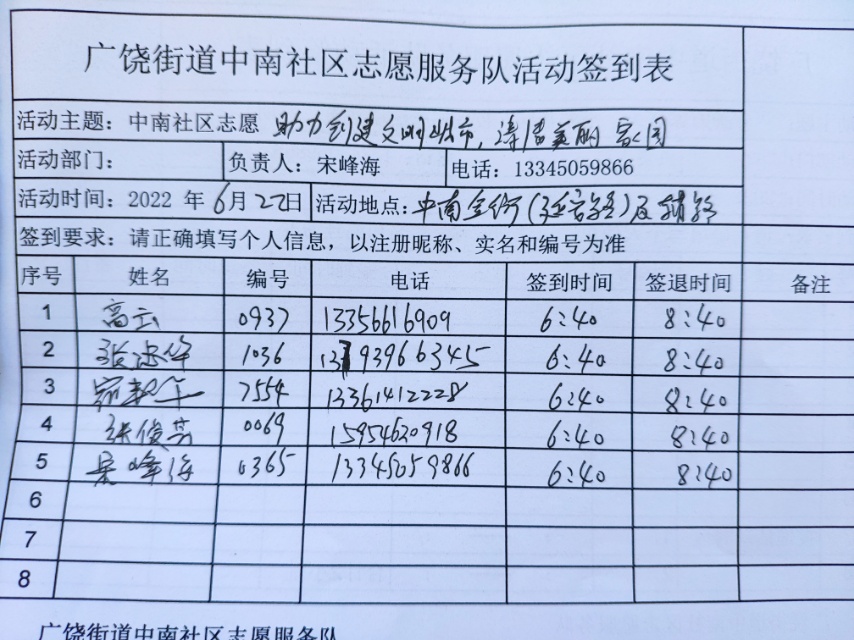 广饶街道中南社区志愿服务队活动签到表
活动主题：中南社区志愿 助力创建文明城市，清洁美丽家园
活动部门： 负责人：宋峰海 电话：13345059866
活动时间：2022 年 6月22日 活动地点：中南
签到要求：请正确填写个人信息，以注册昵称、实名和编号为准
序号 姓名 编号 电话 签到时间 签退时间 备注
1 高云 0937 13356616909 6:40 8:40
2 1036 6:40 8:40
3 7554 13361412228 6:40 8:40
4 张俊芸 0069 15954620918 6:40 8:40
5 宋峰海 0365 13345059866 6:40 8:40
6
7
8
广饶街道中南社区志愿服务队